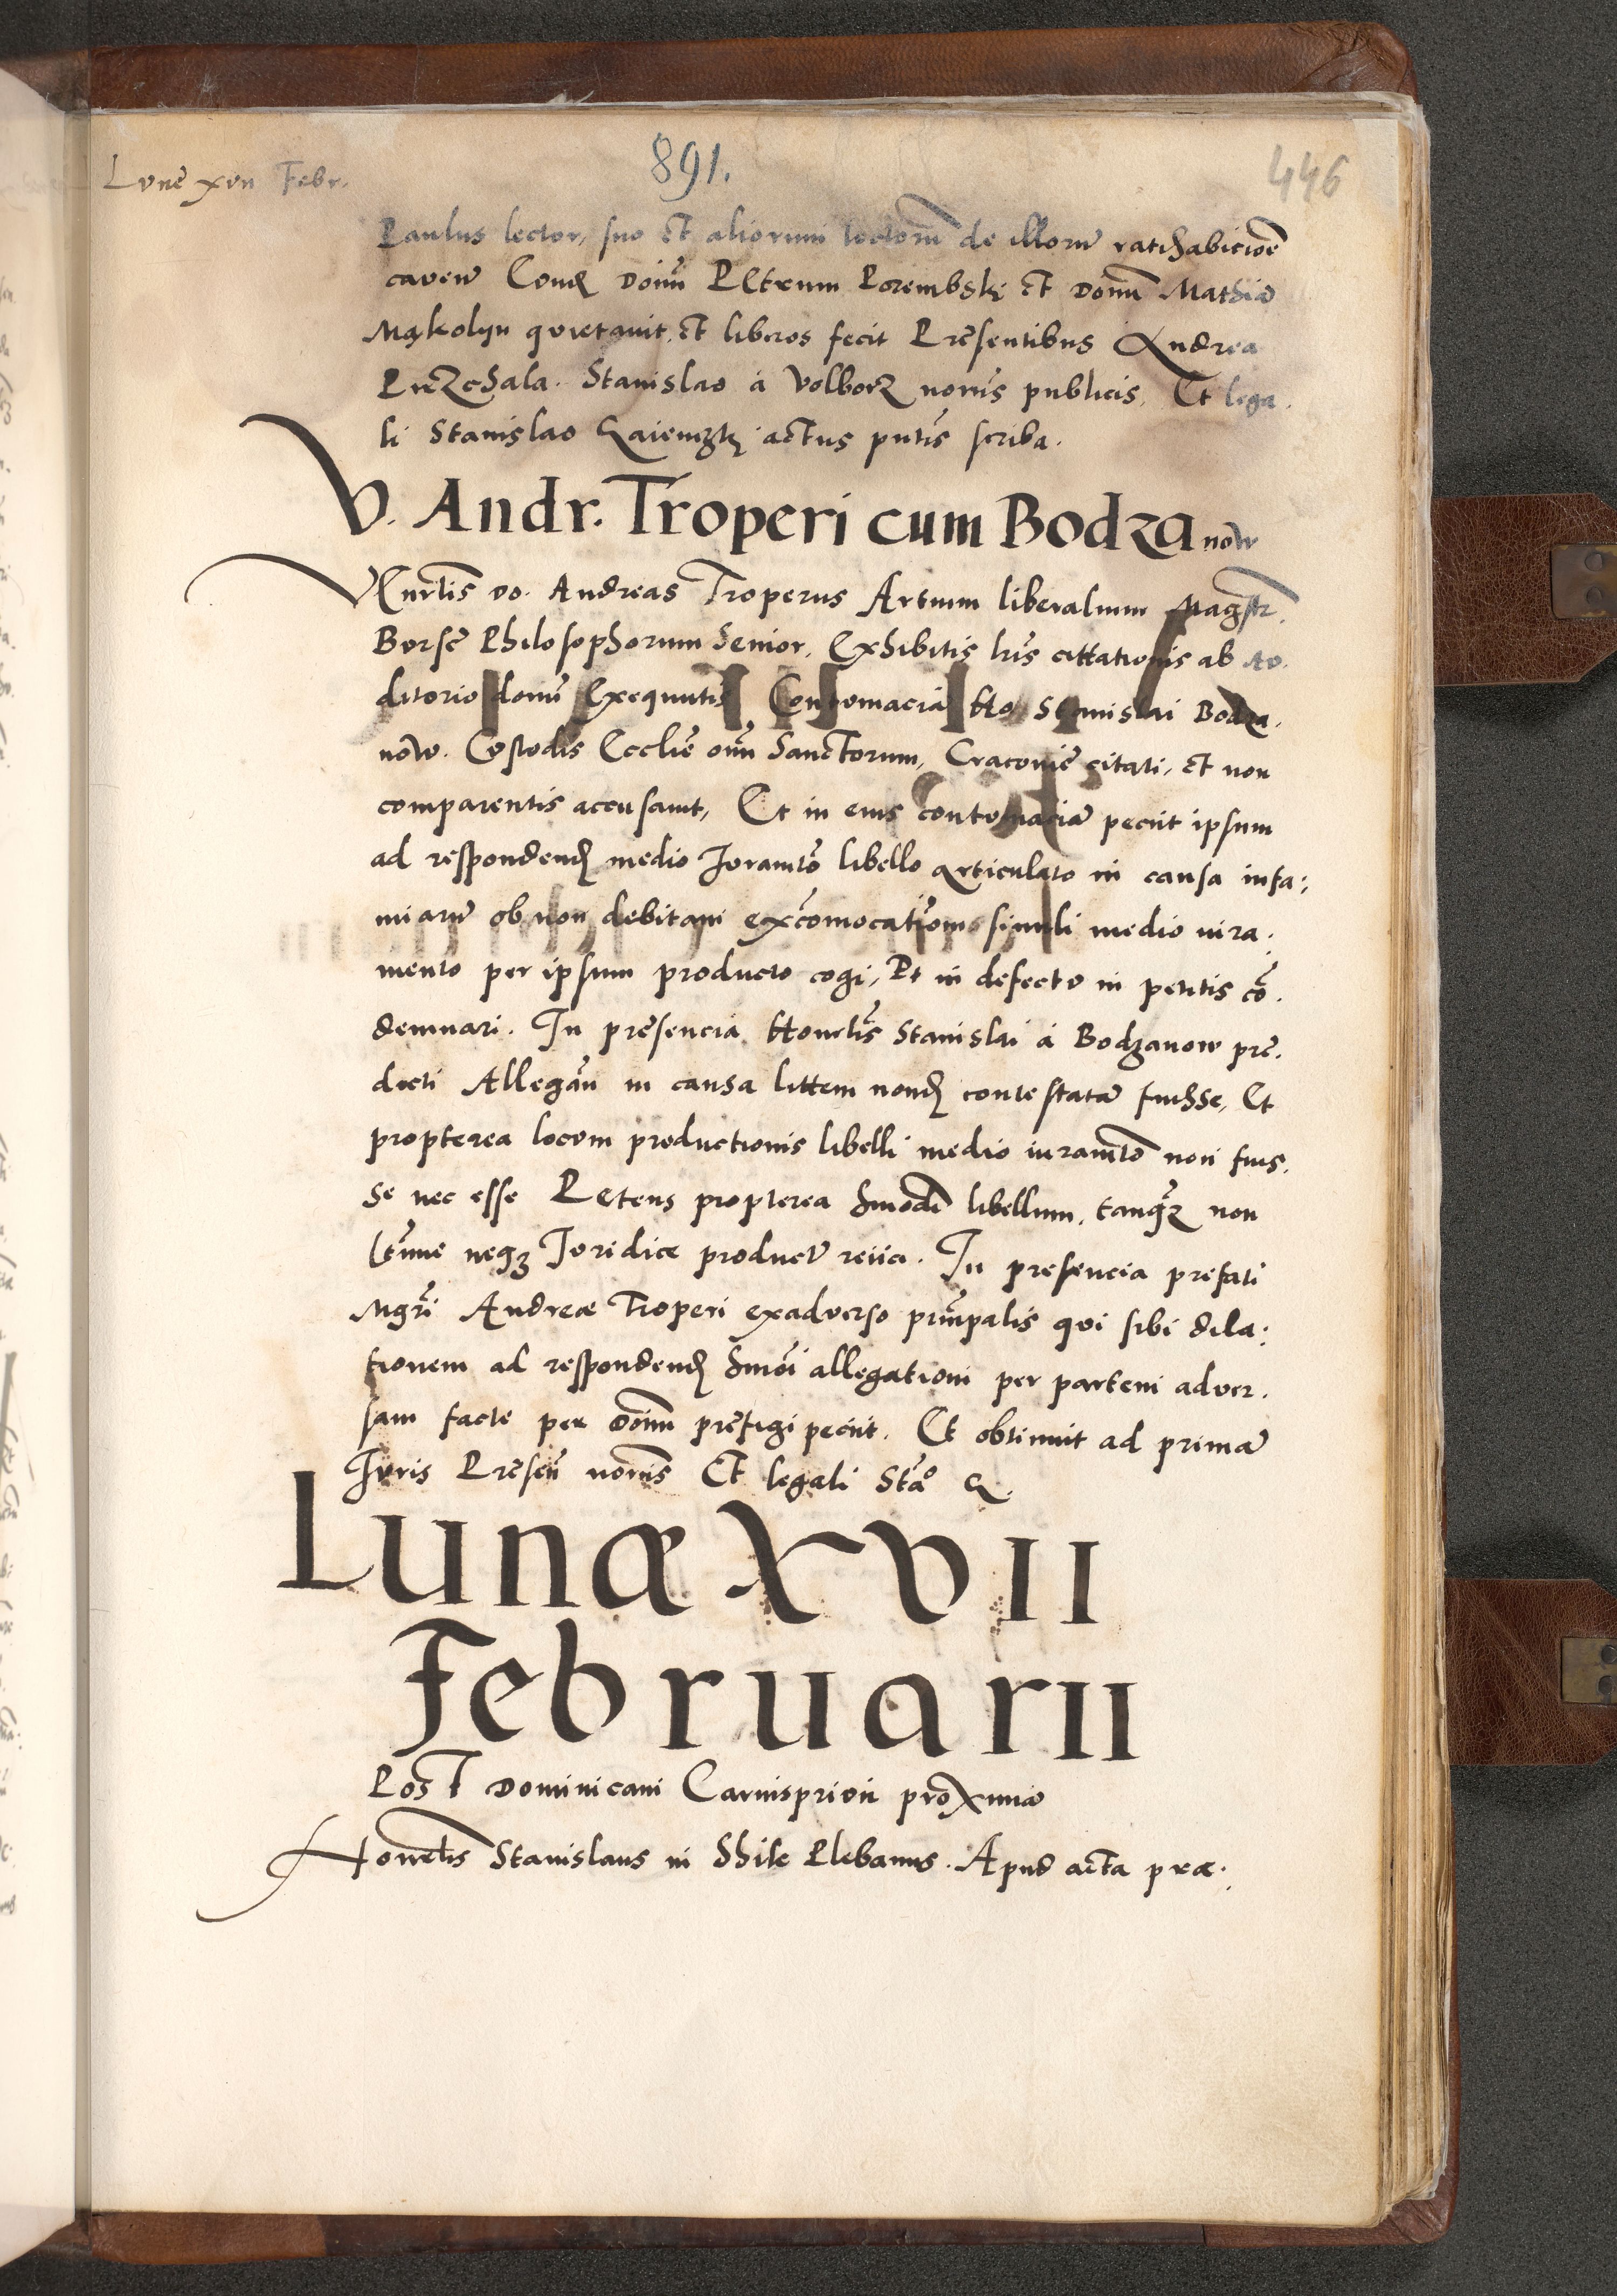 Lune xvii Febr.
891.
446
Paulus lector, suo et aliorum lectorum de illorum ratihabicioe
cavens Cond Doim Petrum Porembski et Donm Mathia
Mąkolijn quietavit, et liberos fecit Presentibus Andrea
Stanislao a Volborz noriis publicis, Et lega
li Stanislao actus pntis scriba.
V. Andr. Troperi cum Bodzanow
Vnrlis do. Andreas Troperus Artium liberalium Magstr.
Burse Philosophorum Senior, Exhibitis lris cittationis ab Av.
ditorio domi Exequutis Contumacia Ho Stanislai Bodza.
now. Custodis Ecclie oim Sanctorum, Cracovie citati, et non
comparentis accusavit, Et in eius contumacia peciit ipsum
ad respondend medio Juramto libello articulato in causa infa:
miarum ob non debitam excomocationis simili medio iura.
mento per ipsum producto cogi, Et in defectu in petitis co.
demnari. In presencia Honrlis Stanislai a Bodzanow pre.
dicti Allegan in causa littem nond contestata fuisse, Et
propterea locum productionis libelli medio iuramto non fuis.
se nec esse Petens propterea hmodi libellum, tanq non
ltime neq Juridice productu reiici. In presencia prefati
Mgri Andreæ Troperi exadverso principalis qui sibi dila:
tionem ad respondend hmoi allegationi per partem adver.
sam facte per doim prefigi peciit. Et obtinuit ad prima
Juris Presen noriis Et legali Stao Q.
Lunæ XVII
Februarii
Post Dominicam Carnisprivii proxima
Honrlis Stanislaus in Plebanus. Apud acta præ.